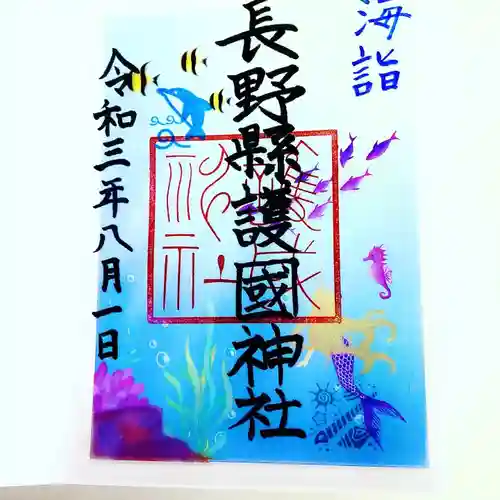 海詣
長野縣護國神社
令和三年八月一日